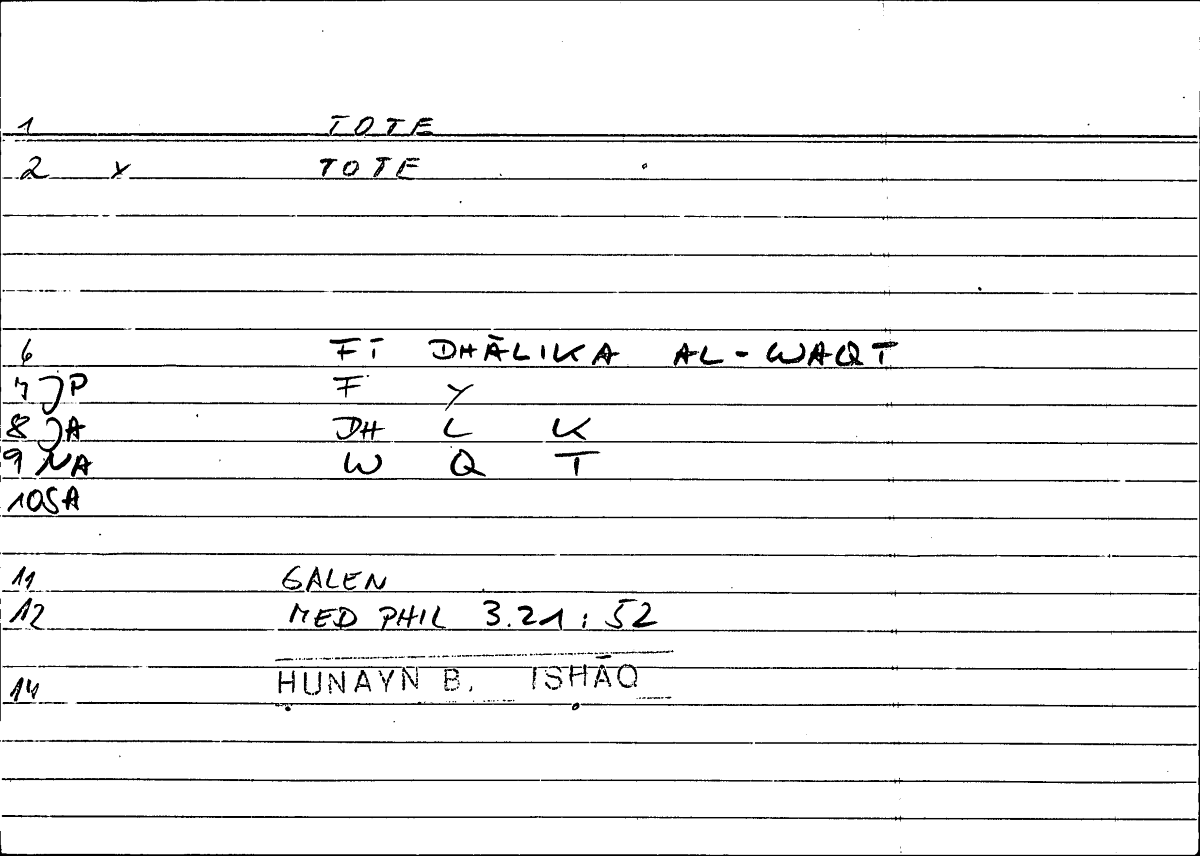 1 TOTE
2 x TOTE
6 FĪ DHĀLIKA AL-WAQT
7 JP F Y
8 JA DH L K
9 NA W Q T
10 SA
11 GALEN
12 MED PHIL 3.21 ; 52
14 ḤUNAYN B. ISḤĀQ